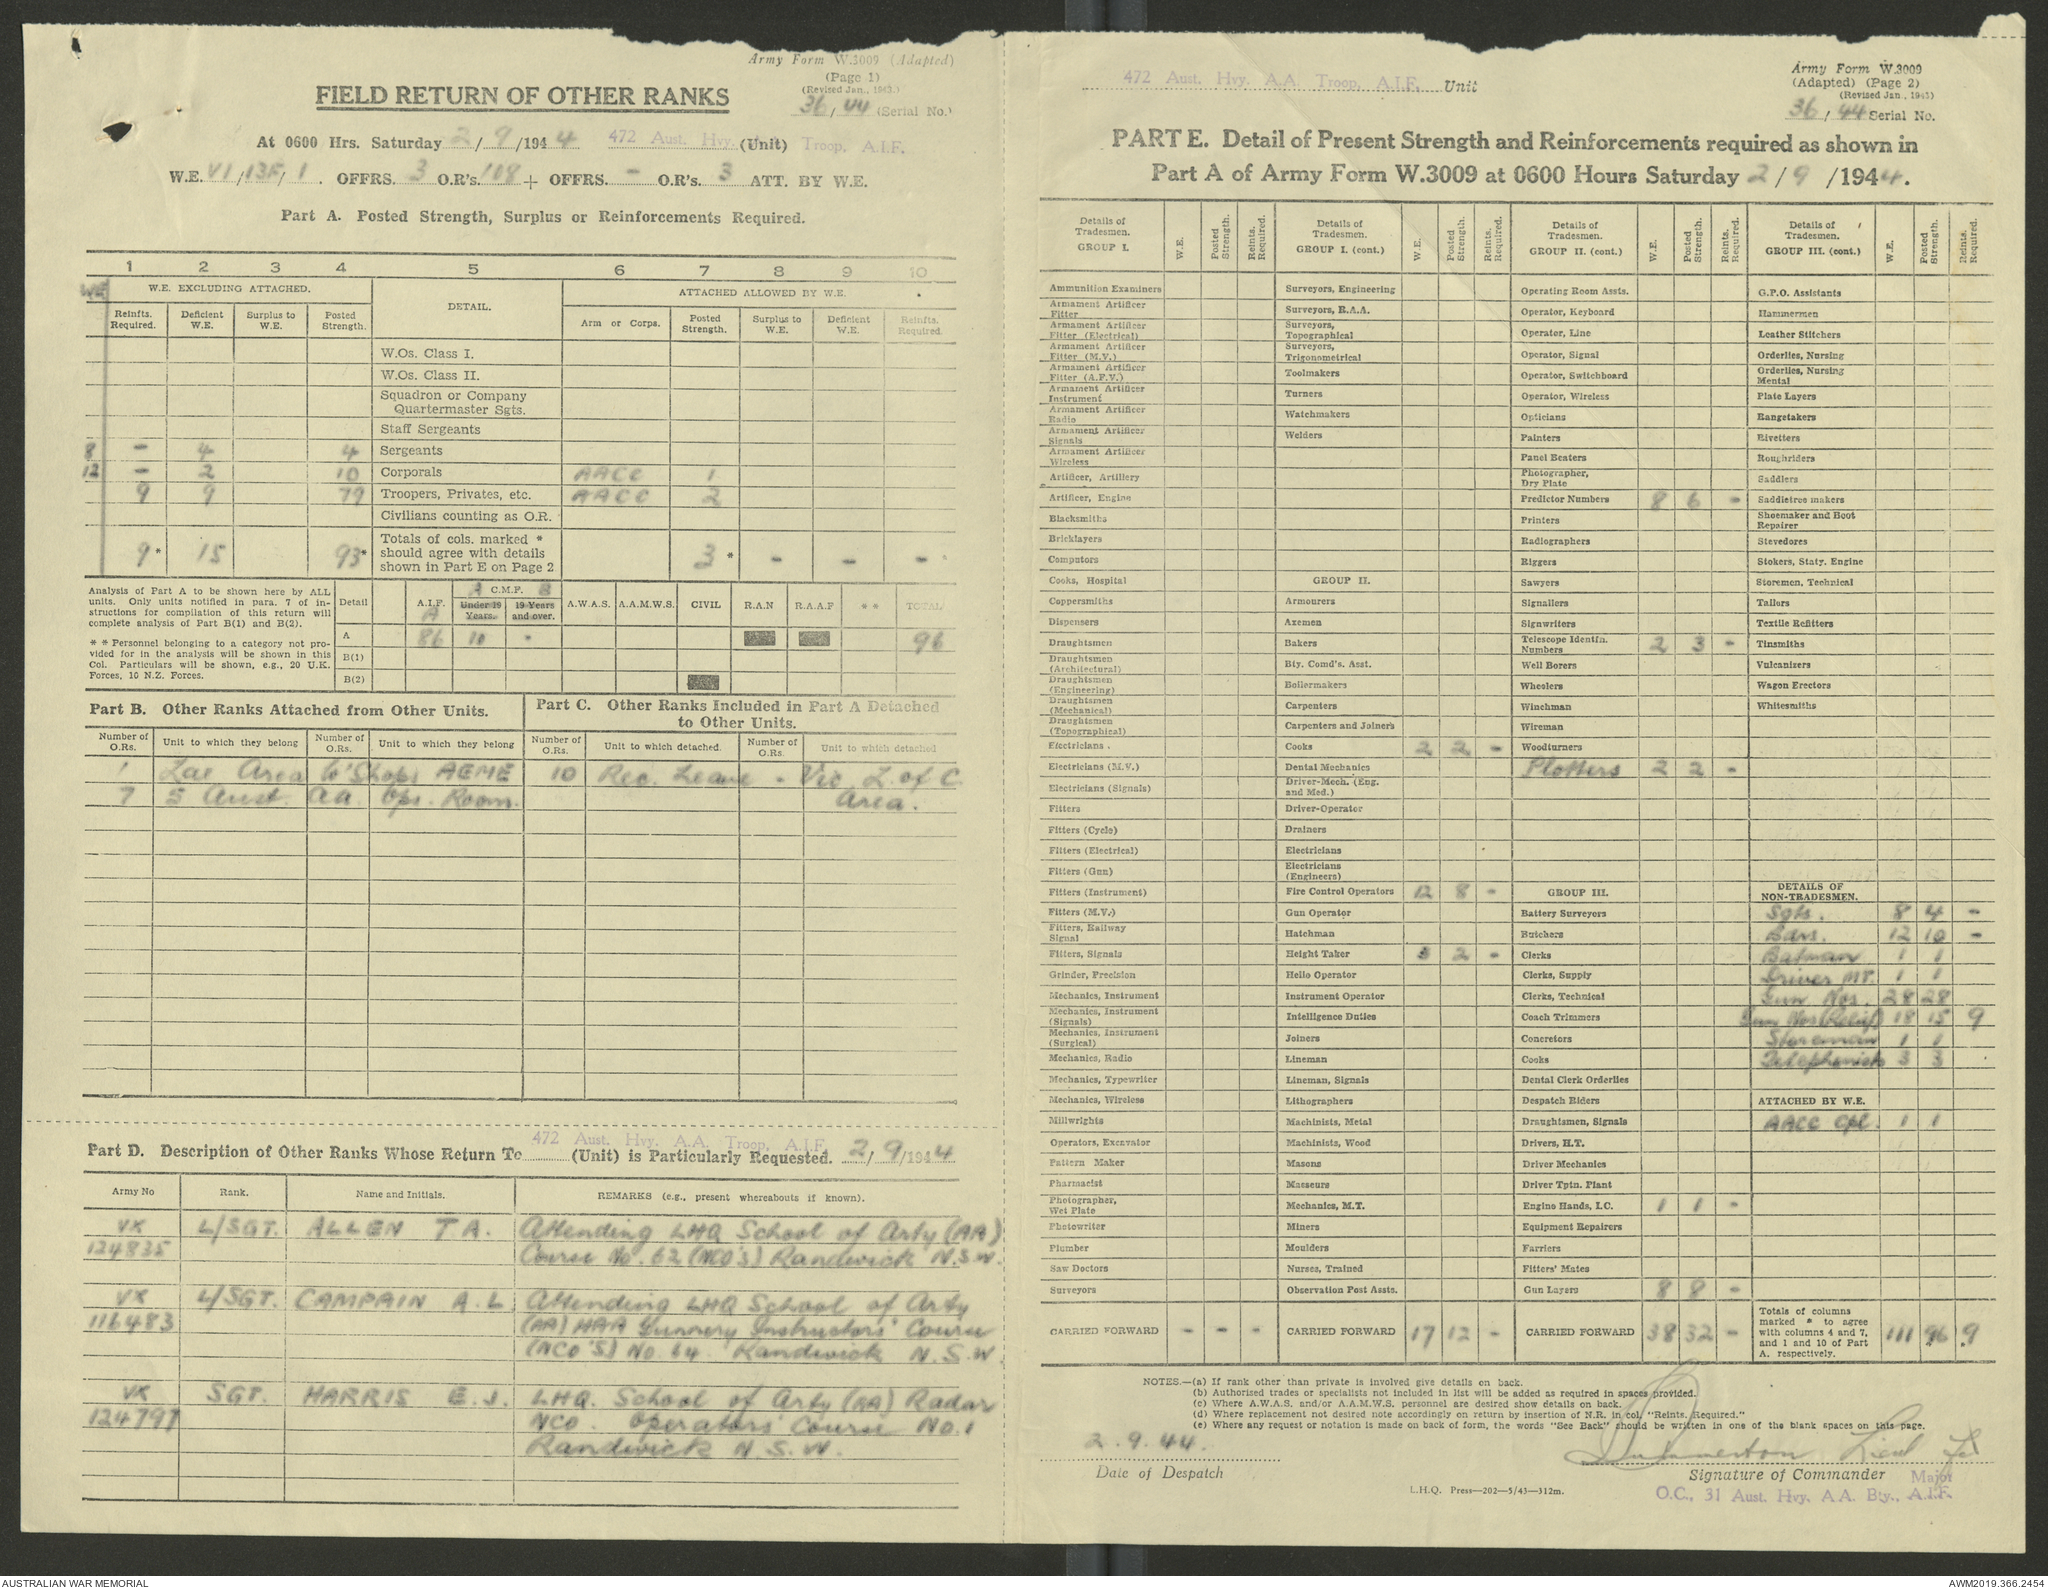 Army Form W.3009 (Adapted)
(Page 1)
(Revised Jan., 1943.)
36/44 (Serial No.)
FIELD RETURN OF OTHER RANKS
At 0600 Hrs. Saturday 2/9/1944 472 Aust. Hvy. (Unit) Troop, A.I.F.
W.E. VI/13F/1. OFFRS. 3 O.R's. 108 + OFFRS. - O.R's. 3 ATT. BY W.E.
Part A. Posted Strength, Surplus or Reinforcements Required.
1 2 3 4 5 6 7 8 9 10
WE W.E. EXCLUDING ATTACHED. DETAIL. ATTACHED ALLOWED BY W.E.
Reinfts. Required. Deficient W.E. Surplus to W.E. Posted Strength. Arm or Corps. Posted Strength. Surplus to W.E. Deficient W.E. Reinfts. Required.
W.Os. Class I.
W.Os. Class II.
Squadron or Company
Quartermaster Sgts.
Staff Sergeants
8 - 4 4 Sergeants
12 - 2 10 Corporals AACC 1
9 9 79 Troopers, Privates, etc. AACC 2
Civilians counting as O.R.
Totals of cols. marked *
9* 15 93* should agree with details 3* - - -
shown in Part E on Page 2
Analysis of Part A to be shown here by ALL
units. Only units notified in para. 7 of in-
structions for compilation of this return will
complete analysis of Part B(1) and B(2).
* * Personnel belonging to a category not pro-
vided for in the analysis will be shown in this
Col. Particulars will be shown, e.g., 20 U.K.
Forces, 10 N.Z. Forces.
Detail A.I.F. A A C.M.F. B Under 19 Years. 19 Years and over. A.W.A.S. A.A.M.W.S. CIVIL R.A.N R.A.A.F * * TOTAL
A 86 10 - 96
B(1)
B(2)
Part B. Other Ranks Attached from Other Units.
Part C. Other Ranks Included in Part A Detached
to Other Units.
Number of O.Rs. Unit to which they belong Number of O.Rs. Unit to which they belong Number of O.Rs. Unit to which detached. Number of O.Rs. Unit to which detached
1 Lae Area W'Shops AEME 10 Rec. Leave - Vic. L. of C.
7 5 Aust. AA. Ops. Room. Area.
472 Aust. Hvy. A.A. Troop, A.I.F.
Part D. Description of Other Ranks Whose Return To (Unit) is Particularly Requested. 2/9/1944
Army No Rank. Name and Initials. REMARKS (e.g., present whereabouts if known).
VX L/SGT. ALLEN T A. Attending LHQ School of Arty (AA)
124835 Course No. 62 (NCO'S) Randwick N.S.W.
VX L/SGT. CAMPAIN A. L Attending LHQ School of Arty
116483 (AA) HAA Gunnery Instructors' Course
(NCO'S) No. 64. Randwick N.S.W.
VX SGT. HARRIS E. J. LHQ. School of Arty (AA) Radar
124797 NCO. Operators' Course No. 1
Randwick N.S.W.
472 Aust. Hvy. A.A. Troop, A.I.F. Unit
Army Form W.3009
(Adapted) (Page 2)
(Revised Jan., 1943)
36/44 Serial No.
PART E. Detail of Present Strength and Reinforcements required as shown in
Part A of Army Form W.3009 at 0600 Hours Saturday 2/9/1944.
Details of Tradesmen. GROUP I. W.E. Posted Strength. Reints. Required.
Ammunition Examiners
Armament Artificer Fitter
Armament Artificer Fitter (Electrical)
Armament Artificer Fitter (M.V.)
Armament Artificer Fitter (A.F.V.)
Armament Artificer Instrument
Armament Artificer Radio
Armament Artificer Signals
Armament Artificer Wireless
Artificer, Artillery
Artificer, Engine
Blacksmiths
Bricklayers
Computors
Cooks, Hospital
Coppersmiths
Dispensers
Draughtsmen
Draughtsmen (Architectural)
Draughtsmen (Engineering)
Draughtsmen (Mechanical)
Draughtsmen (Topographical)
Electricians.
Electricians (M.V.)
Electricians (Signals)
Fitters
Fitters (Cycle)
Fitters (Electrical)
Fitters (Gun)
Fitters (Instrument)
Fitters (M.V.)
Fitters, Railway Signal
Fitters, Signals
Grinder, Precision
Mechanics, Instrument
Mechanics, Instrument (Signals)
Mechanics, Instrument (Surgical)
Mechanics, Radio
Mechanics, Typewriter
Mechanics, Wireless
Millwrights
Operators, Excavator
Pattern Maker
Pharmacist
Photographer, Wet Plate
Photowriter
Plumber
Saw Doctors
Surveyors
CARRIED FORWARD - - -
Details of Tradesmen. GROUP I. (cont.) W.E. Posted Strength. Reints. Required.
Surveyors, Engineering
Surveyors, R.A.A.
Surveyors, Topographical
Surveyors, Trigonometrical
Toolmakers
Turners
Watchmakers
Welders
GROUP II.
Armourers
Axemen
Bakers
Bty. Comd's. Asst.
Boilermakers
Carpenters
Carpenters and Joiners
Cooks 2 2 -
Dental Mechanics
Driver-Mech. (Eng. and Med.)
Driver-Operator
Drainers
Electricians
Electricians (Engineers)
Fire Control Operators 12 8 -
Gun Operator
Hatchman
Height Taker 3 2 -
Helio Operator
Instrument Operator
Intelligence Duties
Joiners
Lineman
Lineman, Signals
Lithographers
Machinists, Metal
Machinists, Wood
Masons
Masseurs
Mechanics, M.T.
Miners
Moulders
Nurses, Trained
Observation Post Assts.
CARRIED FORWARD 17 12 -
Details of Tradesmen. GROUP II. (cont.) W.E. Posted Strength. Reints. Required.
Operating Room Assts.
Operator, Keyboard
Operator, Line
Operator, Signal
Operator, Switchboard
Operator, Wireless
Opticians
Painters
Panel Beaters
Photographer, Dry Plate
Predictor Numbers 8 6 -
Printers
Radiographers
Riggers
Sawyers
Signallers
Signwriters
Telescope Identfn. Numbers 2 3 -
Well Borers
Wheelers
Winchman
Wireman
Woodturners
Plotters 2 2 -
GROUP III.
Battery Surveyors
Butchers
Clerks
Clerks, Supply
Clerks, Technical
Coach Trimmers
Concretors
Cooks
Dental Clerk Orderlies
Despatch Riders
Draughtsmen, Signals
Drivers, H.T.
Driver Mechanics
Driver Tptn. Plant
Engine Hands, I.C. 1 1 -
Equipment Repairers
Farriers
Fitters' Mates
Gun Layers 8 8 -
CARRIED FORWARD 38 32 -
Details of Tradesmen. GROUP III. (cont.) W.E. Posted Strength. Reints. Required.
G.P.O. Assistants
Hammermen
Leather Stitchers
Orderlies, Nursing
Orderlies, Nursing Mental
Plate Layers
Rangetakers
Rivetters
Roughriders
Saddlers
Saddletree makers
Shoemaker and Boot Repairer
Stevedores
Stokers, Staty. Engine
Storemen, Technical
Tailors
Textile Refitters
Tinsmiths
Vulcanizers
Wagon Erectors
Whitesmiths
DETAILS OF NON-TRADESMEN.
Sgts. 8 4 -
Bdrs. 12 10 -
Batman 1 1
Driver MT. 1 1
Gun Nos. 28 28
Gun Nos (Relief) 18 15 9
Storeman 1 1
Telephonists 3 3
ATTACHED BY W.E.
AACC Cpl. 1 1
Totals of columns marked * to agree with columns 4 and 7, and 1 and 10 of Part A. respectively. 111 96 9
NOTES.—(a) If rank other than private is involved give details on back.
(b) Authorised trades or specialists not included in list will be added as required in spaces provided.
(c) Where A.W.A.S. and/or A.A.M.W.S. personnel are desired show details on back.
(d) Where replacement not desired note accordingly on return by insertion of N.R. in col. "Reints. Required."
(e) Where any request or notation is made on back of form, the words "See Back" should be written in one of the blank spaces on this page.
2.9.44.
Date of Despatch
Lieut
Signature of Commander Major
O.C., 31 Aust. Hvy. A.A. Bty., A.I.F.
L.H.Q. Press—202—5/43—312m.
AUSTRALIAN WAR MEMORIAL
AWM2019.366.2454